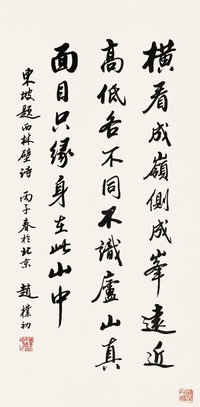 橫看成嶺側成峯遠近
高低各不同不識廬山真
面目只緣身在此山中
東坡題西林壁詩 丙子春於北京 趙樸初